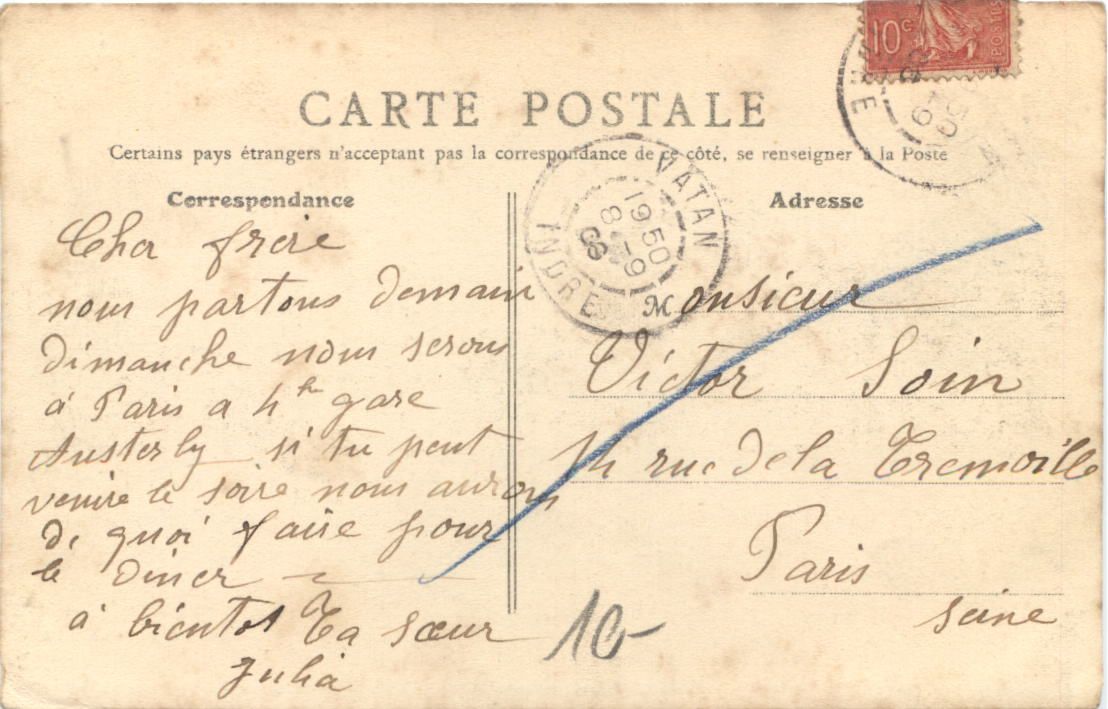 10c
POSTES
CARTE POSTALE
Certains pays étrangers n'acceptant pas la correspondance de ce côté, se renseigner à la Poste
Correspondance
Cher frere
nous partons demain
dimanche nous serons
à Paris a 4 h gare
Austerly si tu peut
venire le soire nous aurons
de quoi faire pour
le diner
à bientot Ta sœur
Julia
VATAN
19 50
8 - 9
INDRE
Adresse
Monsieur
Victor Soin
14 rue de la Tremoille
Paris
seine
10-